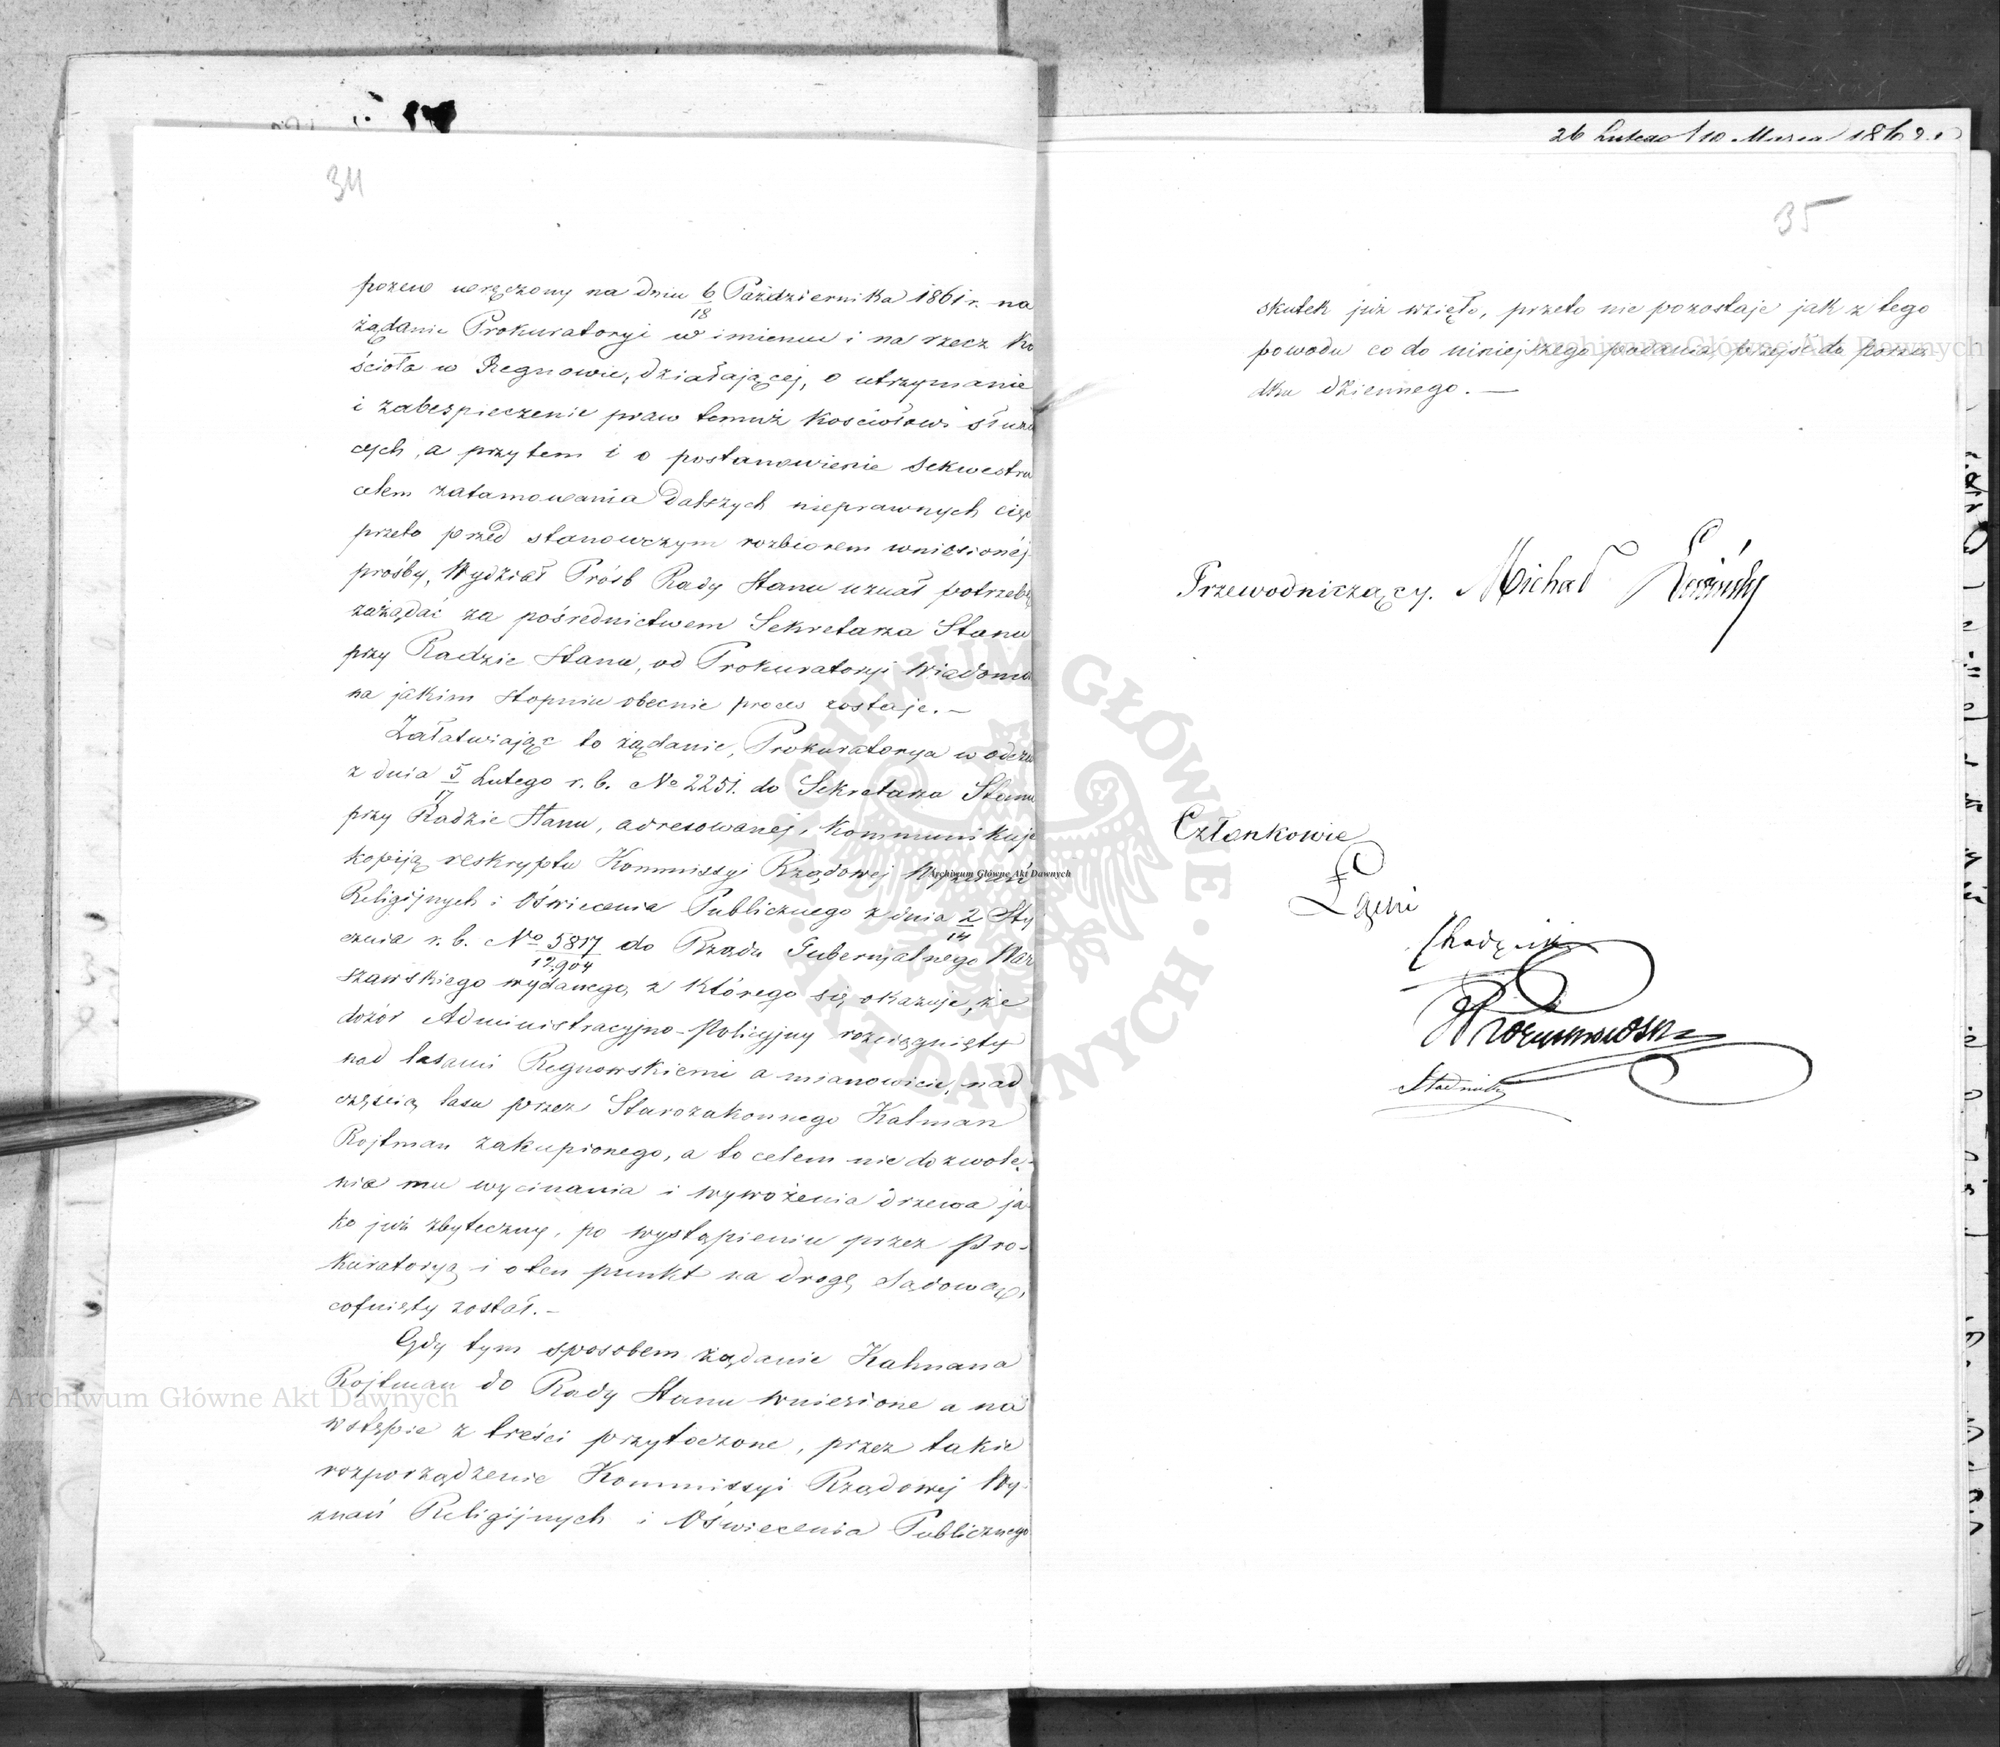 34
pozew wręczony na dniu 6/18 Października 1861 r. na
żądanie Prokuratoryi w imieniu i na rzecz Ko
ścioła w Regnowie, działającej, o utrzymanie
i zabezpieczenie praw temuż Kościołowi służą
cych, a przytem i o postanowienie Sekwestra
celem zatamowania Dalszych nieprawnych cięć
przeto przed stanowczym rozbiorem wniesionéj
prośby, Wydział Próśb Rady Stanu uznał potrzebę
zażądać za pośrednictwem Sekretarza Stanu
przy Radzie Stanu, od Prokuratoryi Wiadomo
na jakim stopniu obecnie proces zostaje. —
Załatwiając to żądanie, Prokuratorya w odezwie
z dnia 5/17 Lutego r. b. No 2251. do Sekretarza Stanu
przy Radzie Stanu, adresowanej, Kommunikuje
kopiją reskryptu Kommissyi Rządowej Wyznań
Religijnych i Oświecenia Publicznego z dnia 2/14 Sty
cznia r. b. No 5817/12,904 do Rządu Gubernjalnego War
szawskiego wydanego, z którego się okazuje, że
dozór Administracyjno-Policyjny rozciągnięty
nad lasami Regnowskiemi a mianowicie, nad
częścią lasu przez Starozakonnego Kalman
Rojtman zakupionego, a to celem nie dozwole-
nia mu wycinania i wywożenia drzewa ja
ko już zbyteczny, po wystąpieniu przez Pro-
kuratoryą i o ten punkt na drogę Sądową,
cofnięty został. —
Gdy tym sposobem żądanie Kalmana
Rojtman do Rady Stanu wniesione a na
wstępie z treści przytoczone, przez takie
rozporządzenie Kommissyi Rządowej Wy-
znań Religijnych i Oświecenia Publicznego
26 Lutego/10 Marca 1862 r.
35
skutek już wzięło, przeto nie pozostaje jak z tego
powodu co do niniejszego podania, przejść do porzą
dku dziennego. —
Przewodniczący. Michał
Członkowie
Łęski
Stadnicki
Archiwum Główne Akt Dawnych
Archiwum Główne Akt Dawnych
Archiwum Główne Akt Dawnych
ARCHIWUM GŁÓWNE AKT DAWNYCH